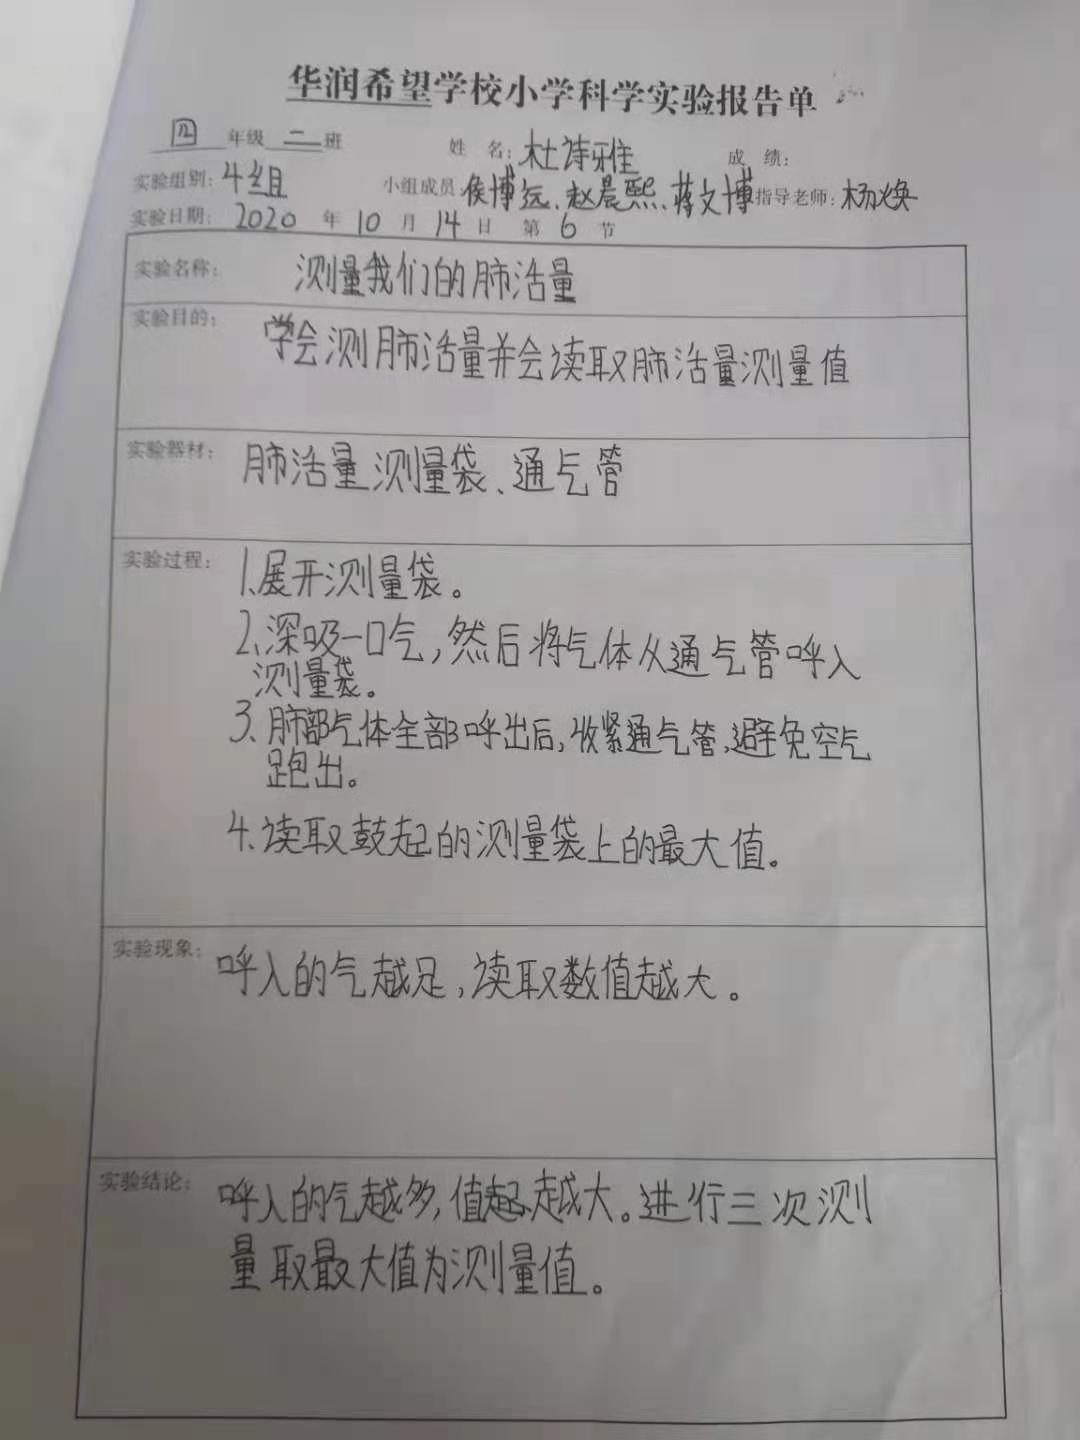 华润希望学校小学科学实验报告单
四年级二班 姓 名：杜诗雅 成 绩：
实验组别：4组 小组成员：侯博远、赵晨熙、蒋文博 指导老师：杨焕
实验日期：2020年10月14日 第6节
实验名称： 测量我们的肺活量
实验目的： 学会测肺活量并会读取肺活量测量值
实验器材： 肺活量测量袋、通气管
实验过程： 1、展开测量袋。
2、深吸一口气，然后将气体从通气管呼入
测量袋。
3、肺部气体全部呼出后，收紧通气管，避免空气
跑出。
4、读取鼓起的测量袋上的最大值。
实验现象： 呼入的气越足，读取数值越大。
实验结论： 呼入的气越多，值越大。进行三次测
量取最大值为测量值。